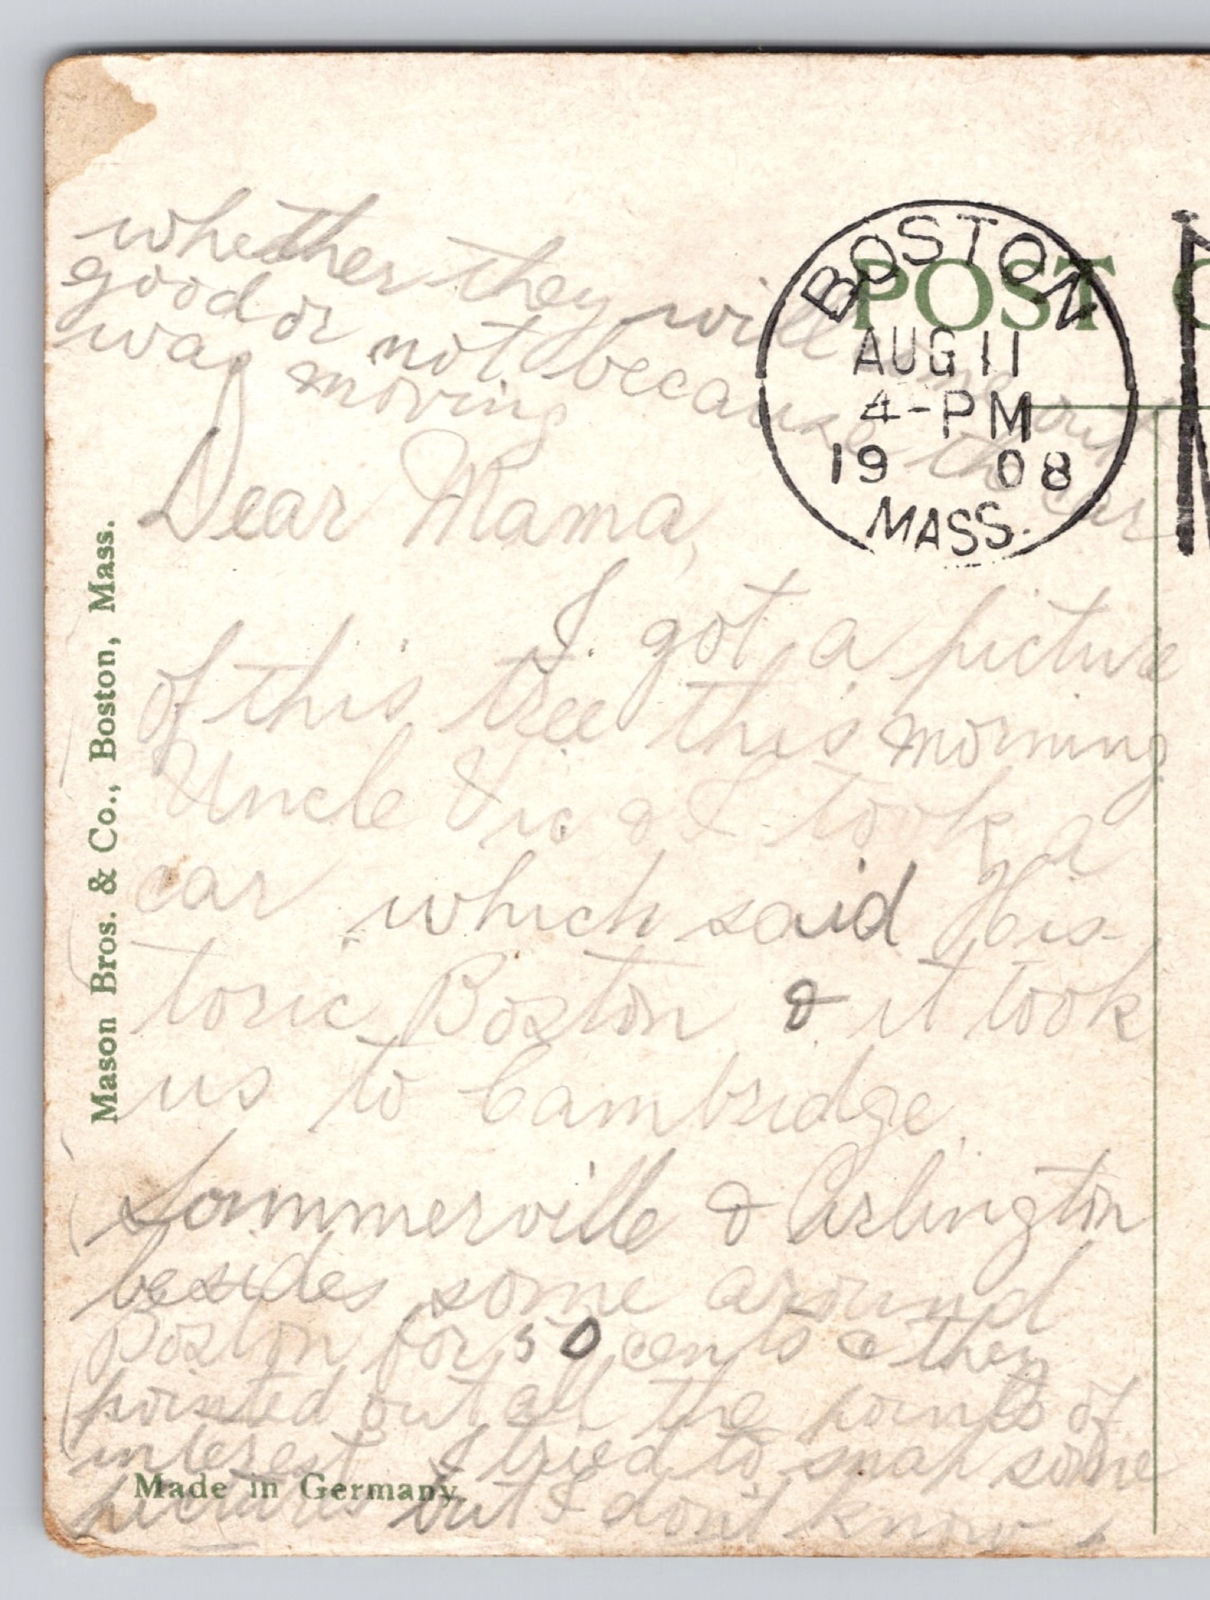 whether they will come out
good or not because the car
was moving
POST C
BOSTON
AUG 11
4-PM
19 08
MASS.
Dear Mama,
I got a picture
of this tree this morning
Uncle Vic & I took a
car which said His-
toric Boston & it took
us to Cambridge
Sommerville & Arlington
besides some around
Boston for 50 cents & they
pointed out all the points of
interest I tried to snap some
pictures but I don't know
Mason Bros. & Co., Boston, Mass.
Made in Germany.